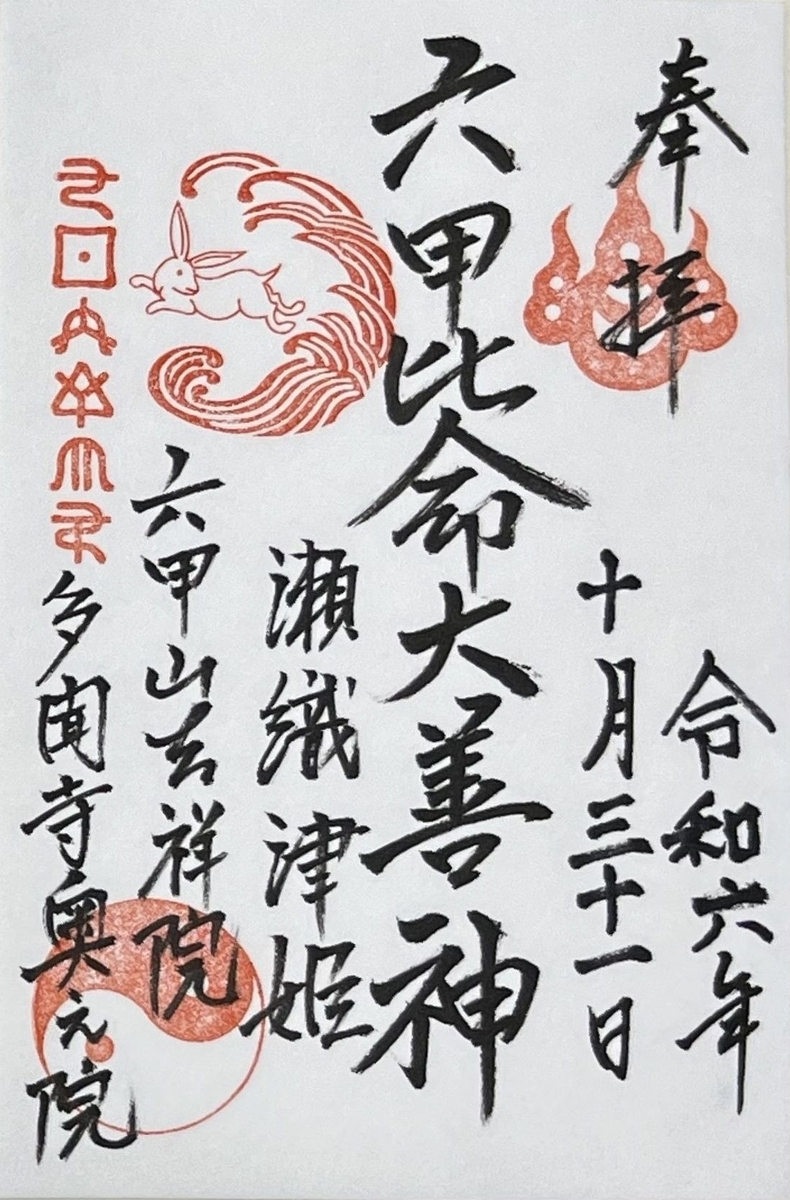 奉拝
令和六年
十月三十一日
六甲比命大善神
瀬織津姫
六甲山吉祥院
多聞寺奥之院